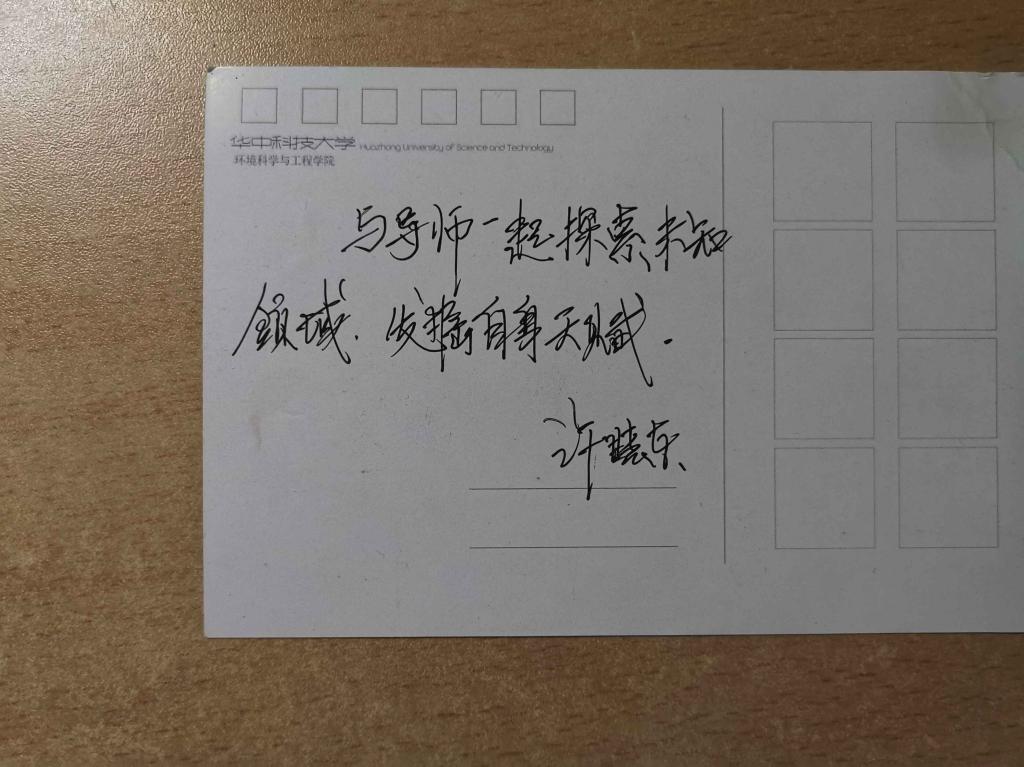 华中科技大学 Huazhong University of Science and Technology
环境科学与工程学院
与导师一起探索未知
领域．发挥自身天赋．
许晓东